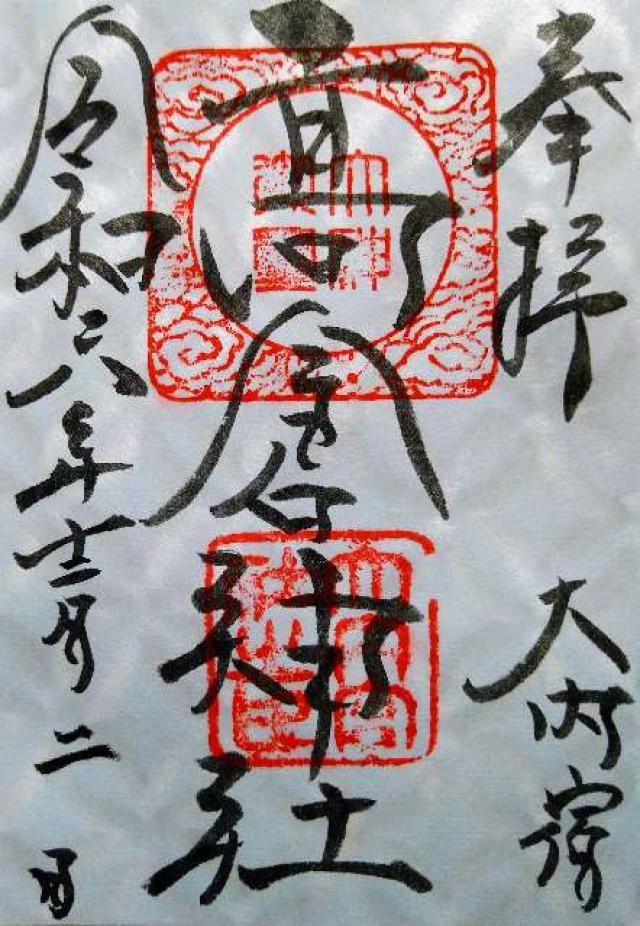 奉拝
大内宿
高倉神社
令和六年十二月二日